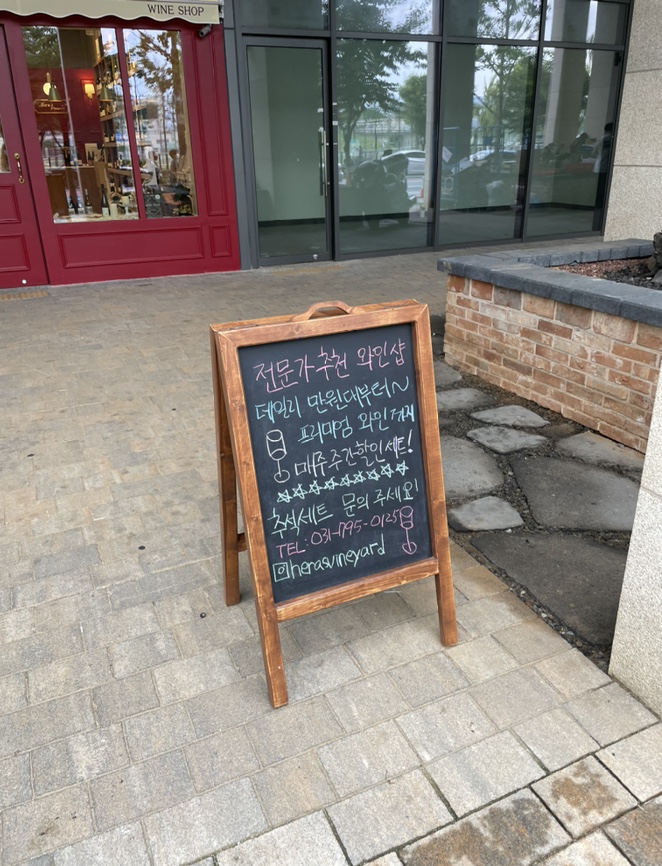 WINE SHOP
전문가 추천 와인샵
데일리 만원대부터~
프리미엄 와인까지
매주 주간할인세트!
추석세트 문의 주세요!
TEL: 031-795-0125
@herasvineyard